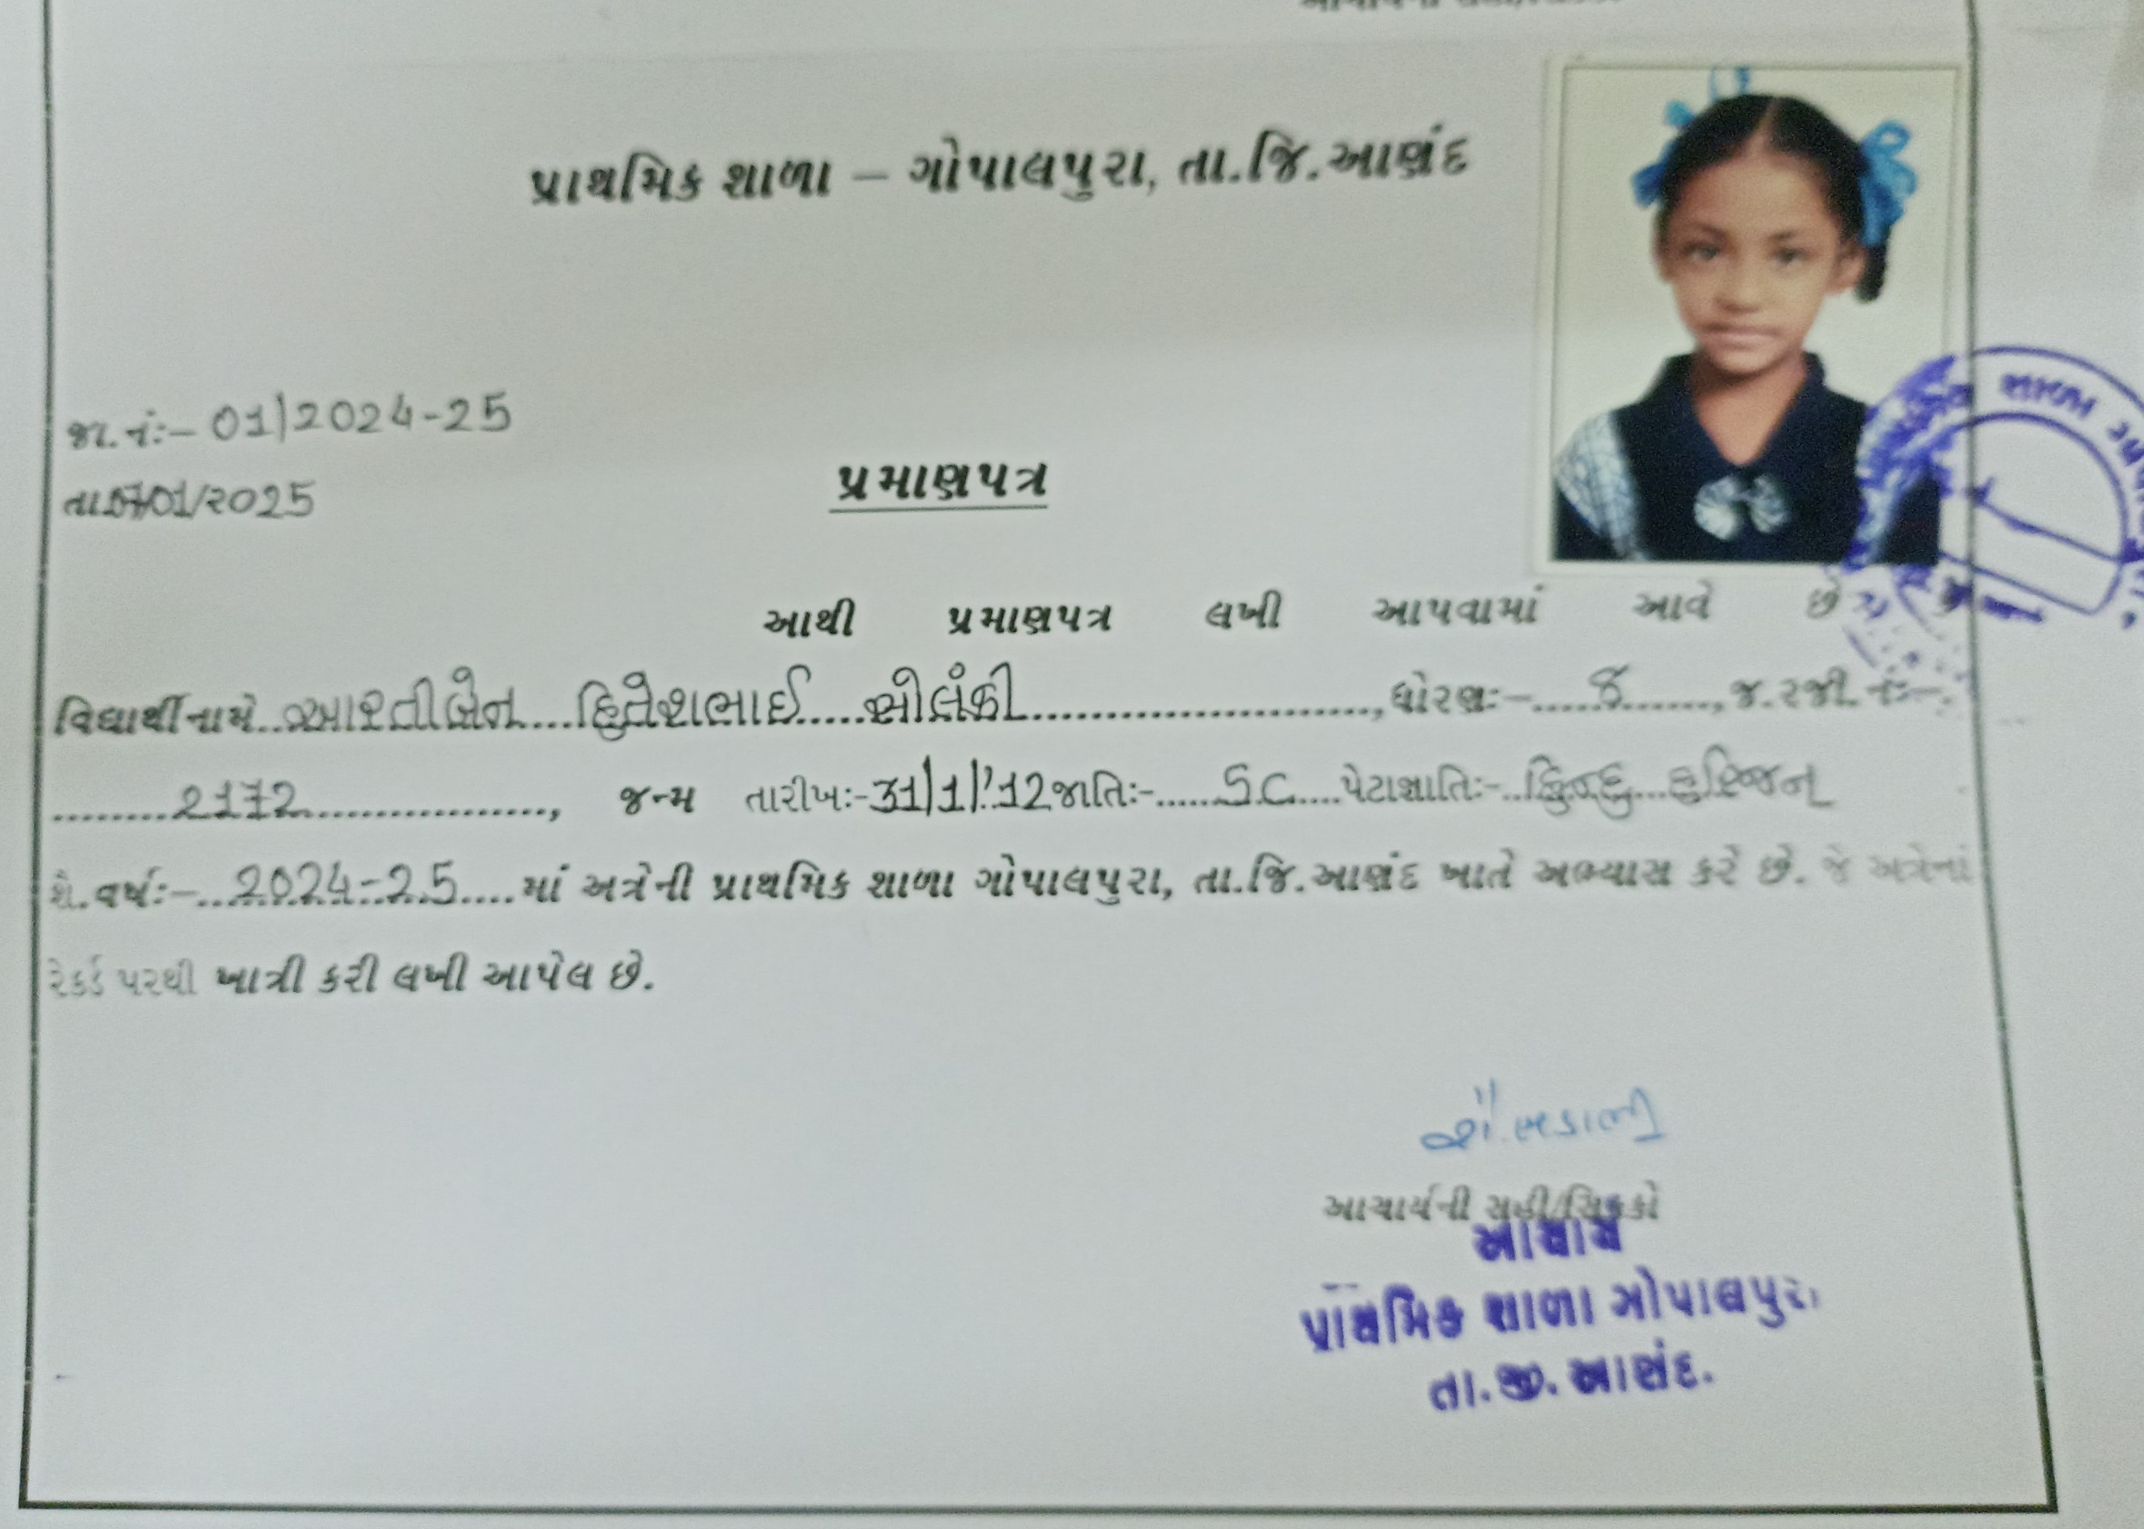 પ્રાથમિક શાળા – ગોપાલપુરા, તા.જિ.આણંદ
જા.નંઃ– 01/2024-25
તા.07/01/2025
પ્રમાણપત્ર
આથી પ્રમાણપત્ર લખી આપવામાં આવે છે કે
વિદ્યાર્થીનામે..આરતીબેન....હિતેશભાઈ.....સોલંકી.............................,ધોરણઃ–.....૪.......,જ.રજી.નંઃ–
.........2172..................., જન્મ તારીખઃ-31/1/'12જાતિઃ-......SC....પેટાજ્ઞાતિઃ-..હિન્દુ...હરિજન
શૈ.વર્ષઃ–...2024-25....માં અત્રેની પ્રાથમિક શાળા ગોપાલપુરા, તા.જિ.આણંદ ખાતે અભ્યાસ કરે છે. જે અત્રેનાં
રેકર્ડ પરથી ખાત્રી કરી લખી આપેલ છે.
આચાર્યની સહી/સિક્કો
આચાર્ય
પ્રાથમિક શાળા ગોપાલપુરા
તા.જી. આણંદ.